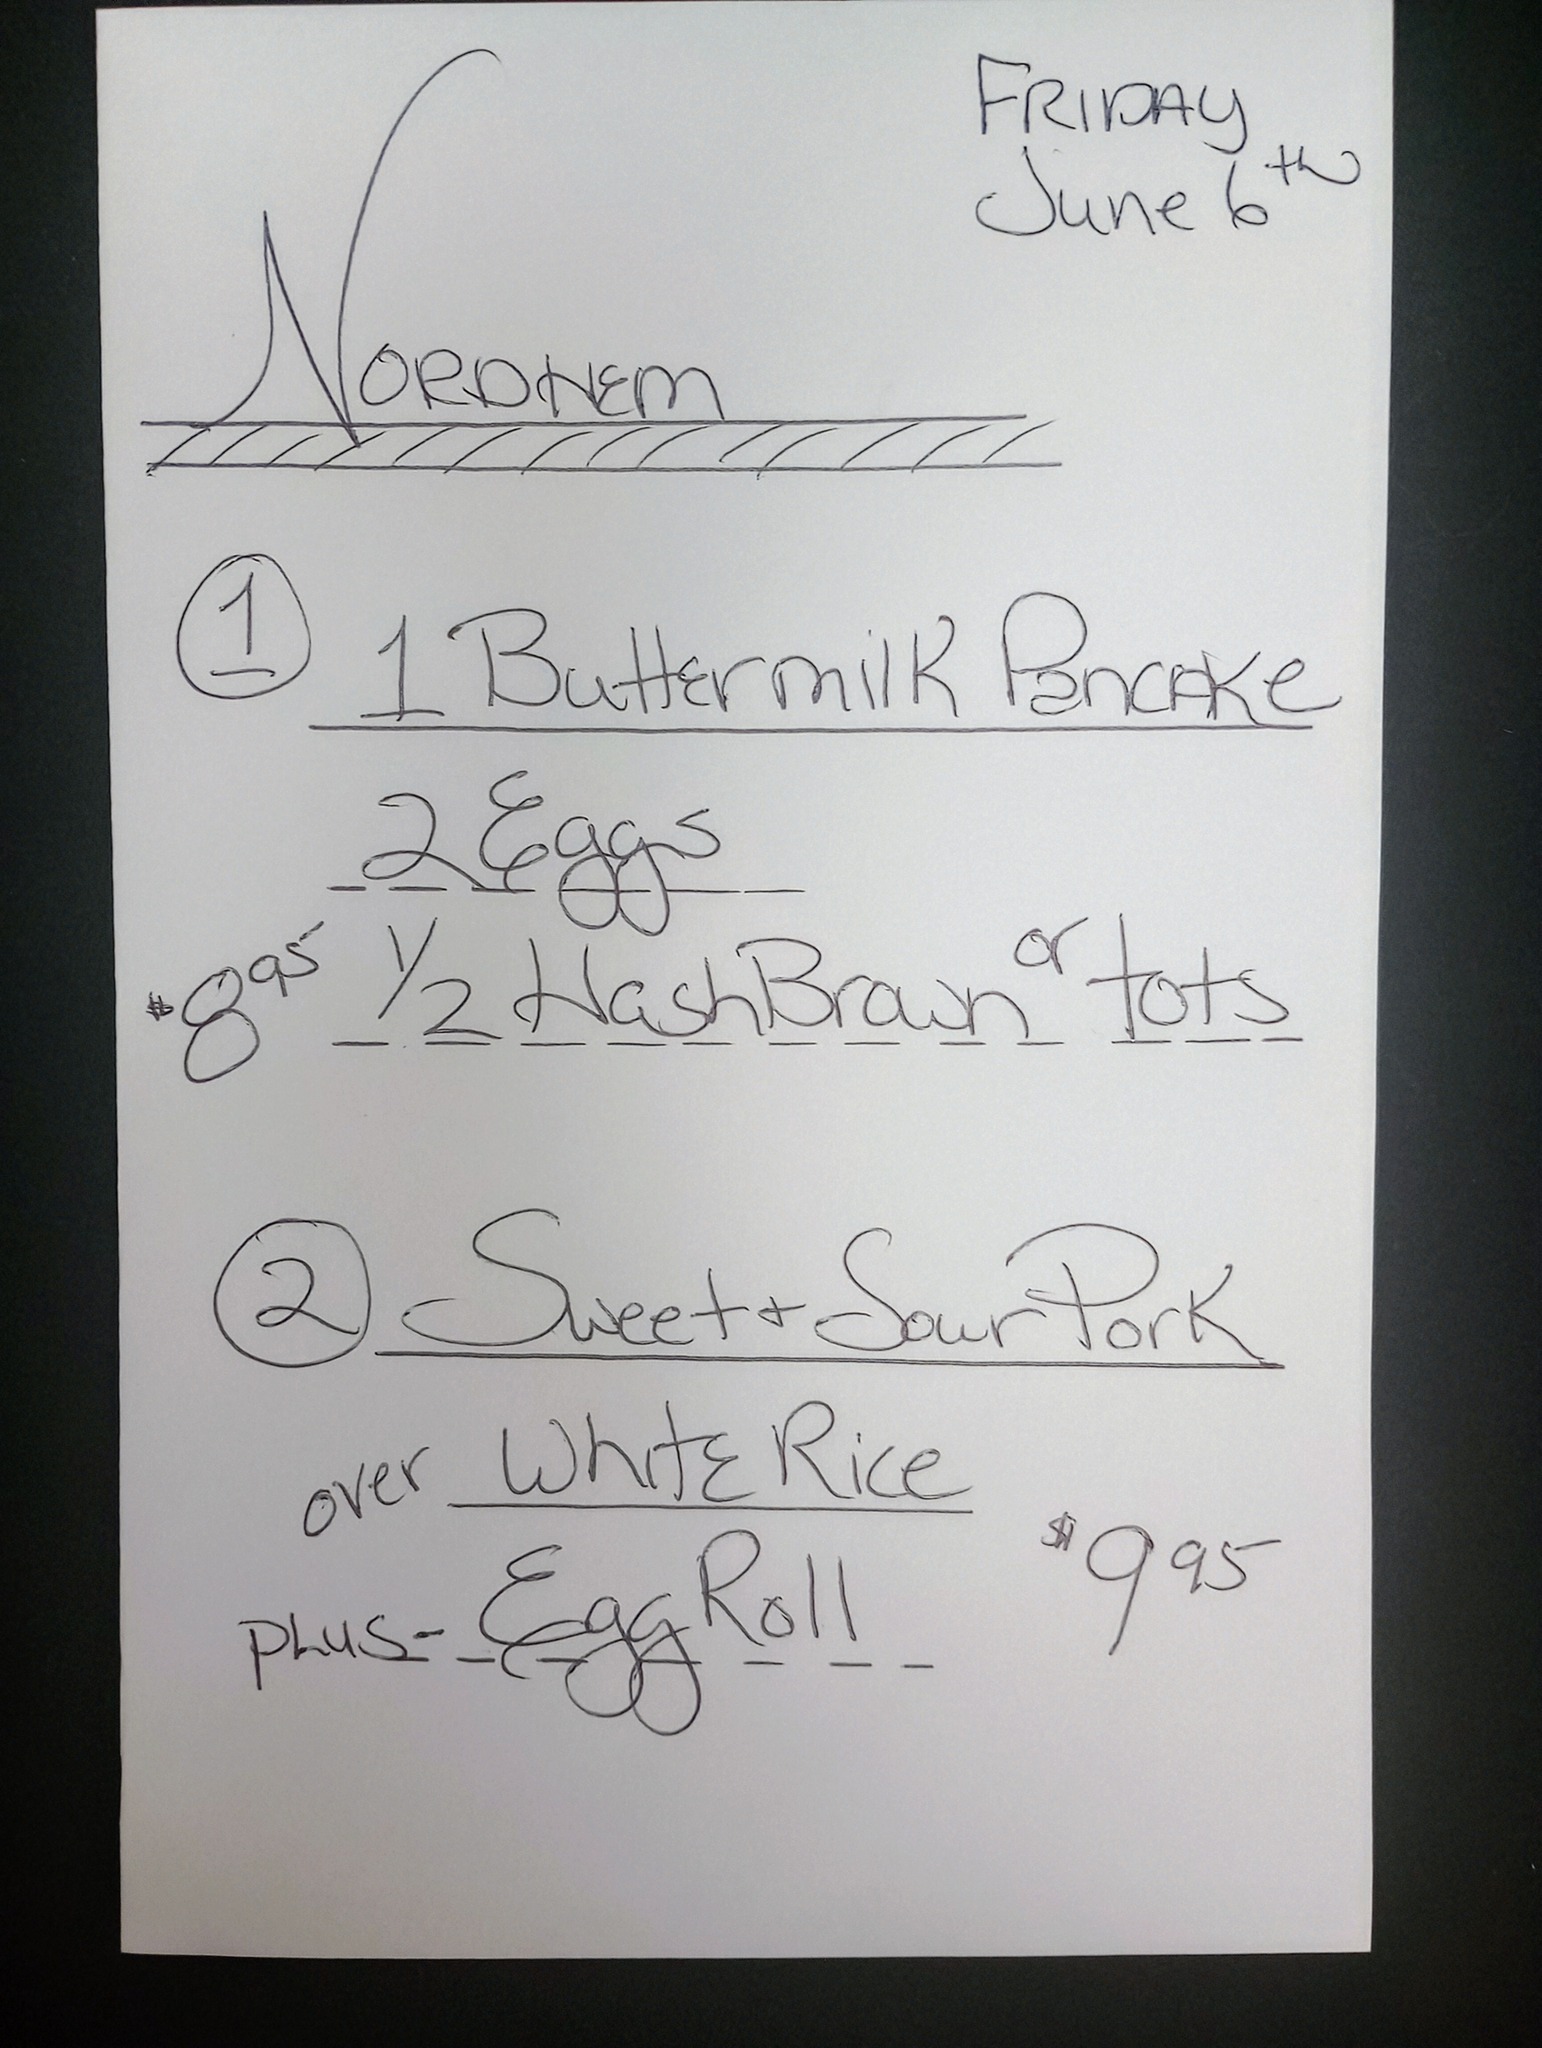 FRIDAY
June 6th
NORDHEM
1 1 Buttermilk Pancake
2 Eggs
$8 95 1/2 HashBrown or tots
2 Sweet + Sour Pork
over White Rice
plus - Egg Roll $9 95